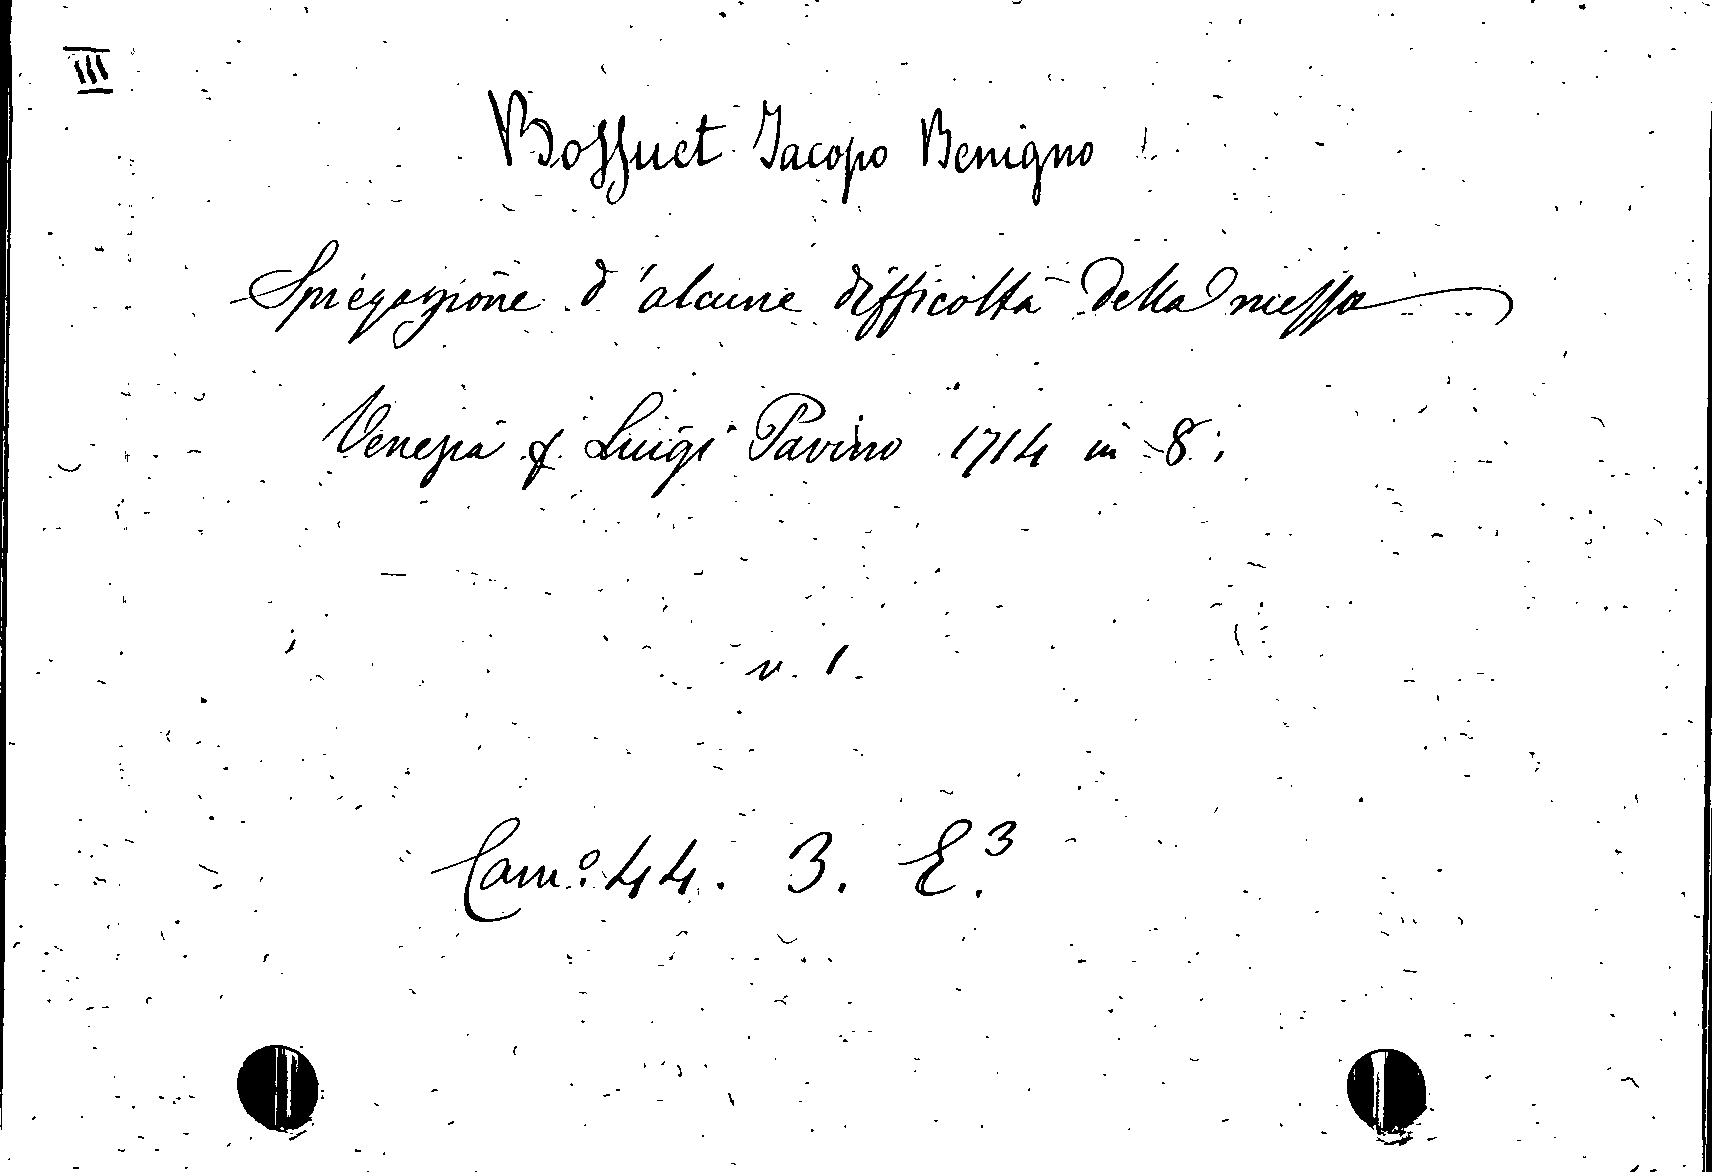 III
Bossuet Jacopo Benigno
Spiegazione d'alcune difficoltà della messa
Venezia f. Luigi Pavino 1714 in 8.
v. 1.
Cam.º 44. 3. E.³